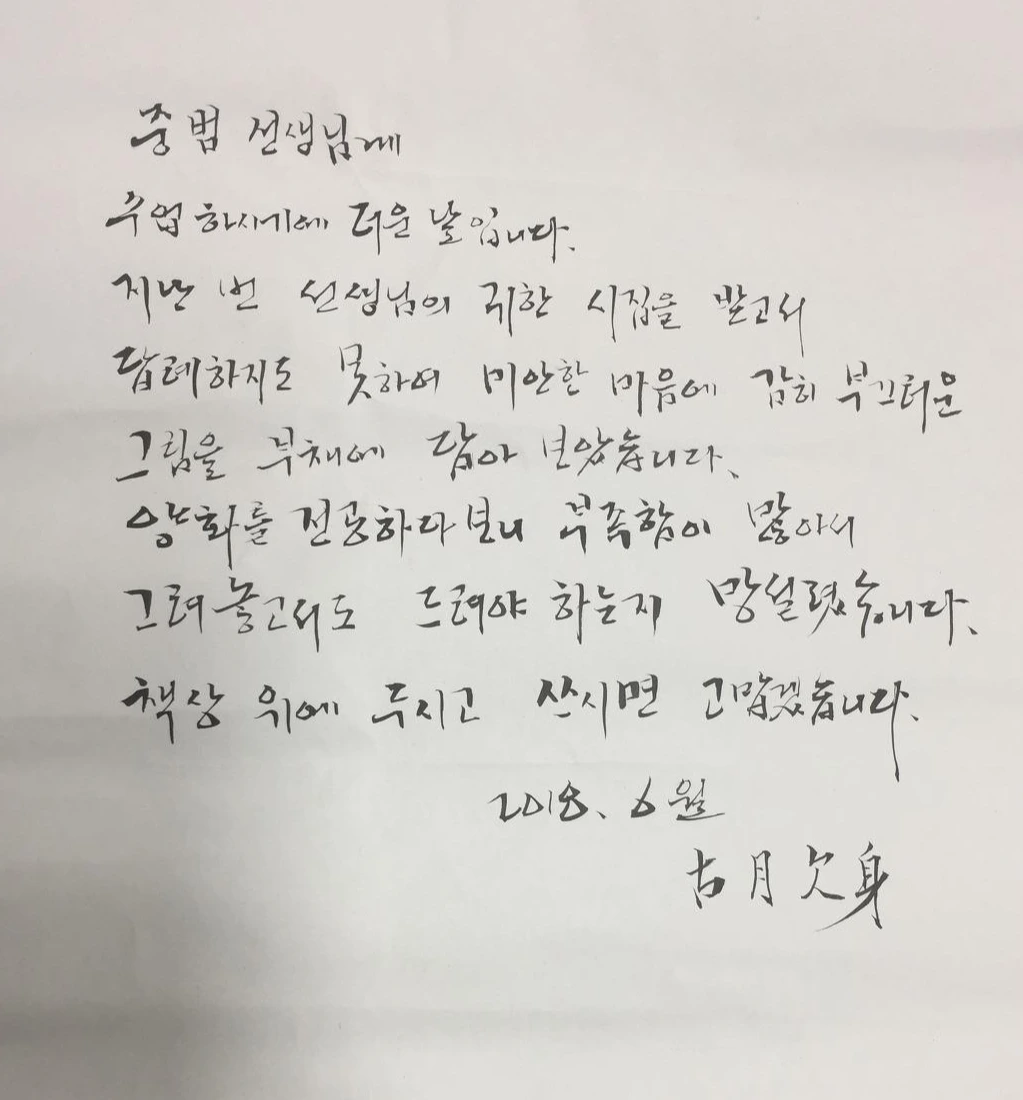 중범 선생님께
수업하시기에 더운 날입니다.
지난 번 선생님의 귀한 시집을 받고서
답례하지도 못하여 미안한 마음에 감히 부끄러운
그림을 부채에 담아 보았습니다.
양화를 전공하다보니 부족함이 많아서
그려놓고서도 드려야 하는지 망설였습니다.
책상 위에 두시고 쓰시면 고맙겠습니다.
2018. 6월
古月欠身